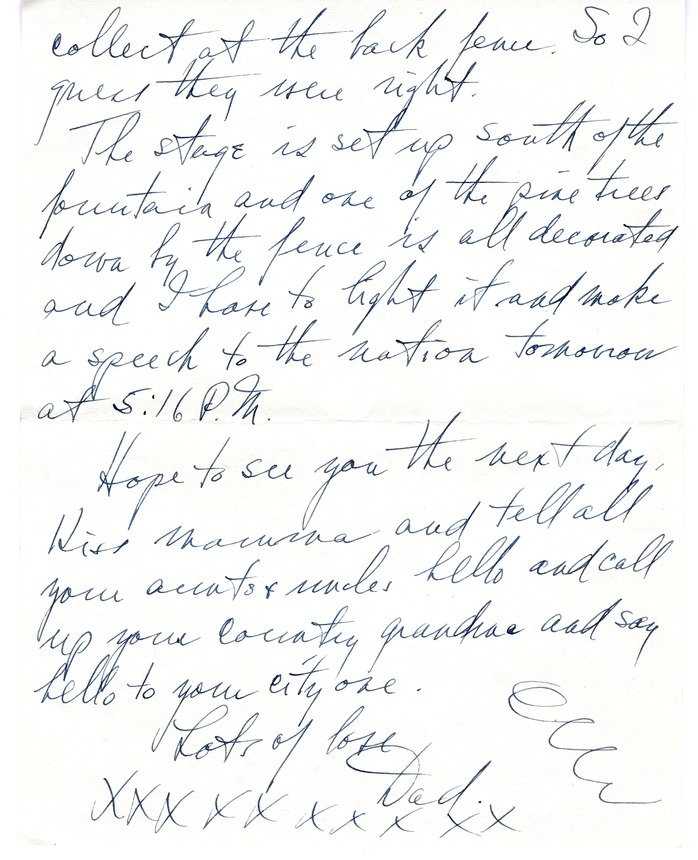 collect at the back fence. So I
guess they were right.
The stage is set up south of the
fountain and one of the pine trees
down by the fence is all decorated
and I have to light it and make
a speech to the nation tomorrow
at 5:16 P.M.
Hope to see you the next day.
Kiss mamma and tell all
your aunts & uncles hello and call
up your country grandma and say
hello to your city one.
Lots of love
Dad.
XXX XX XX X XX